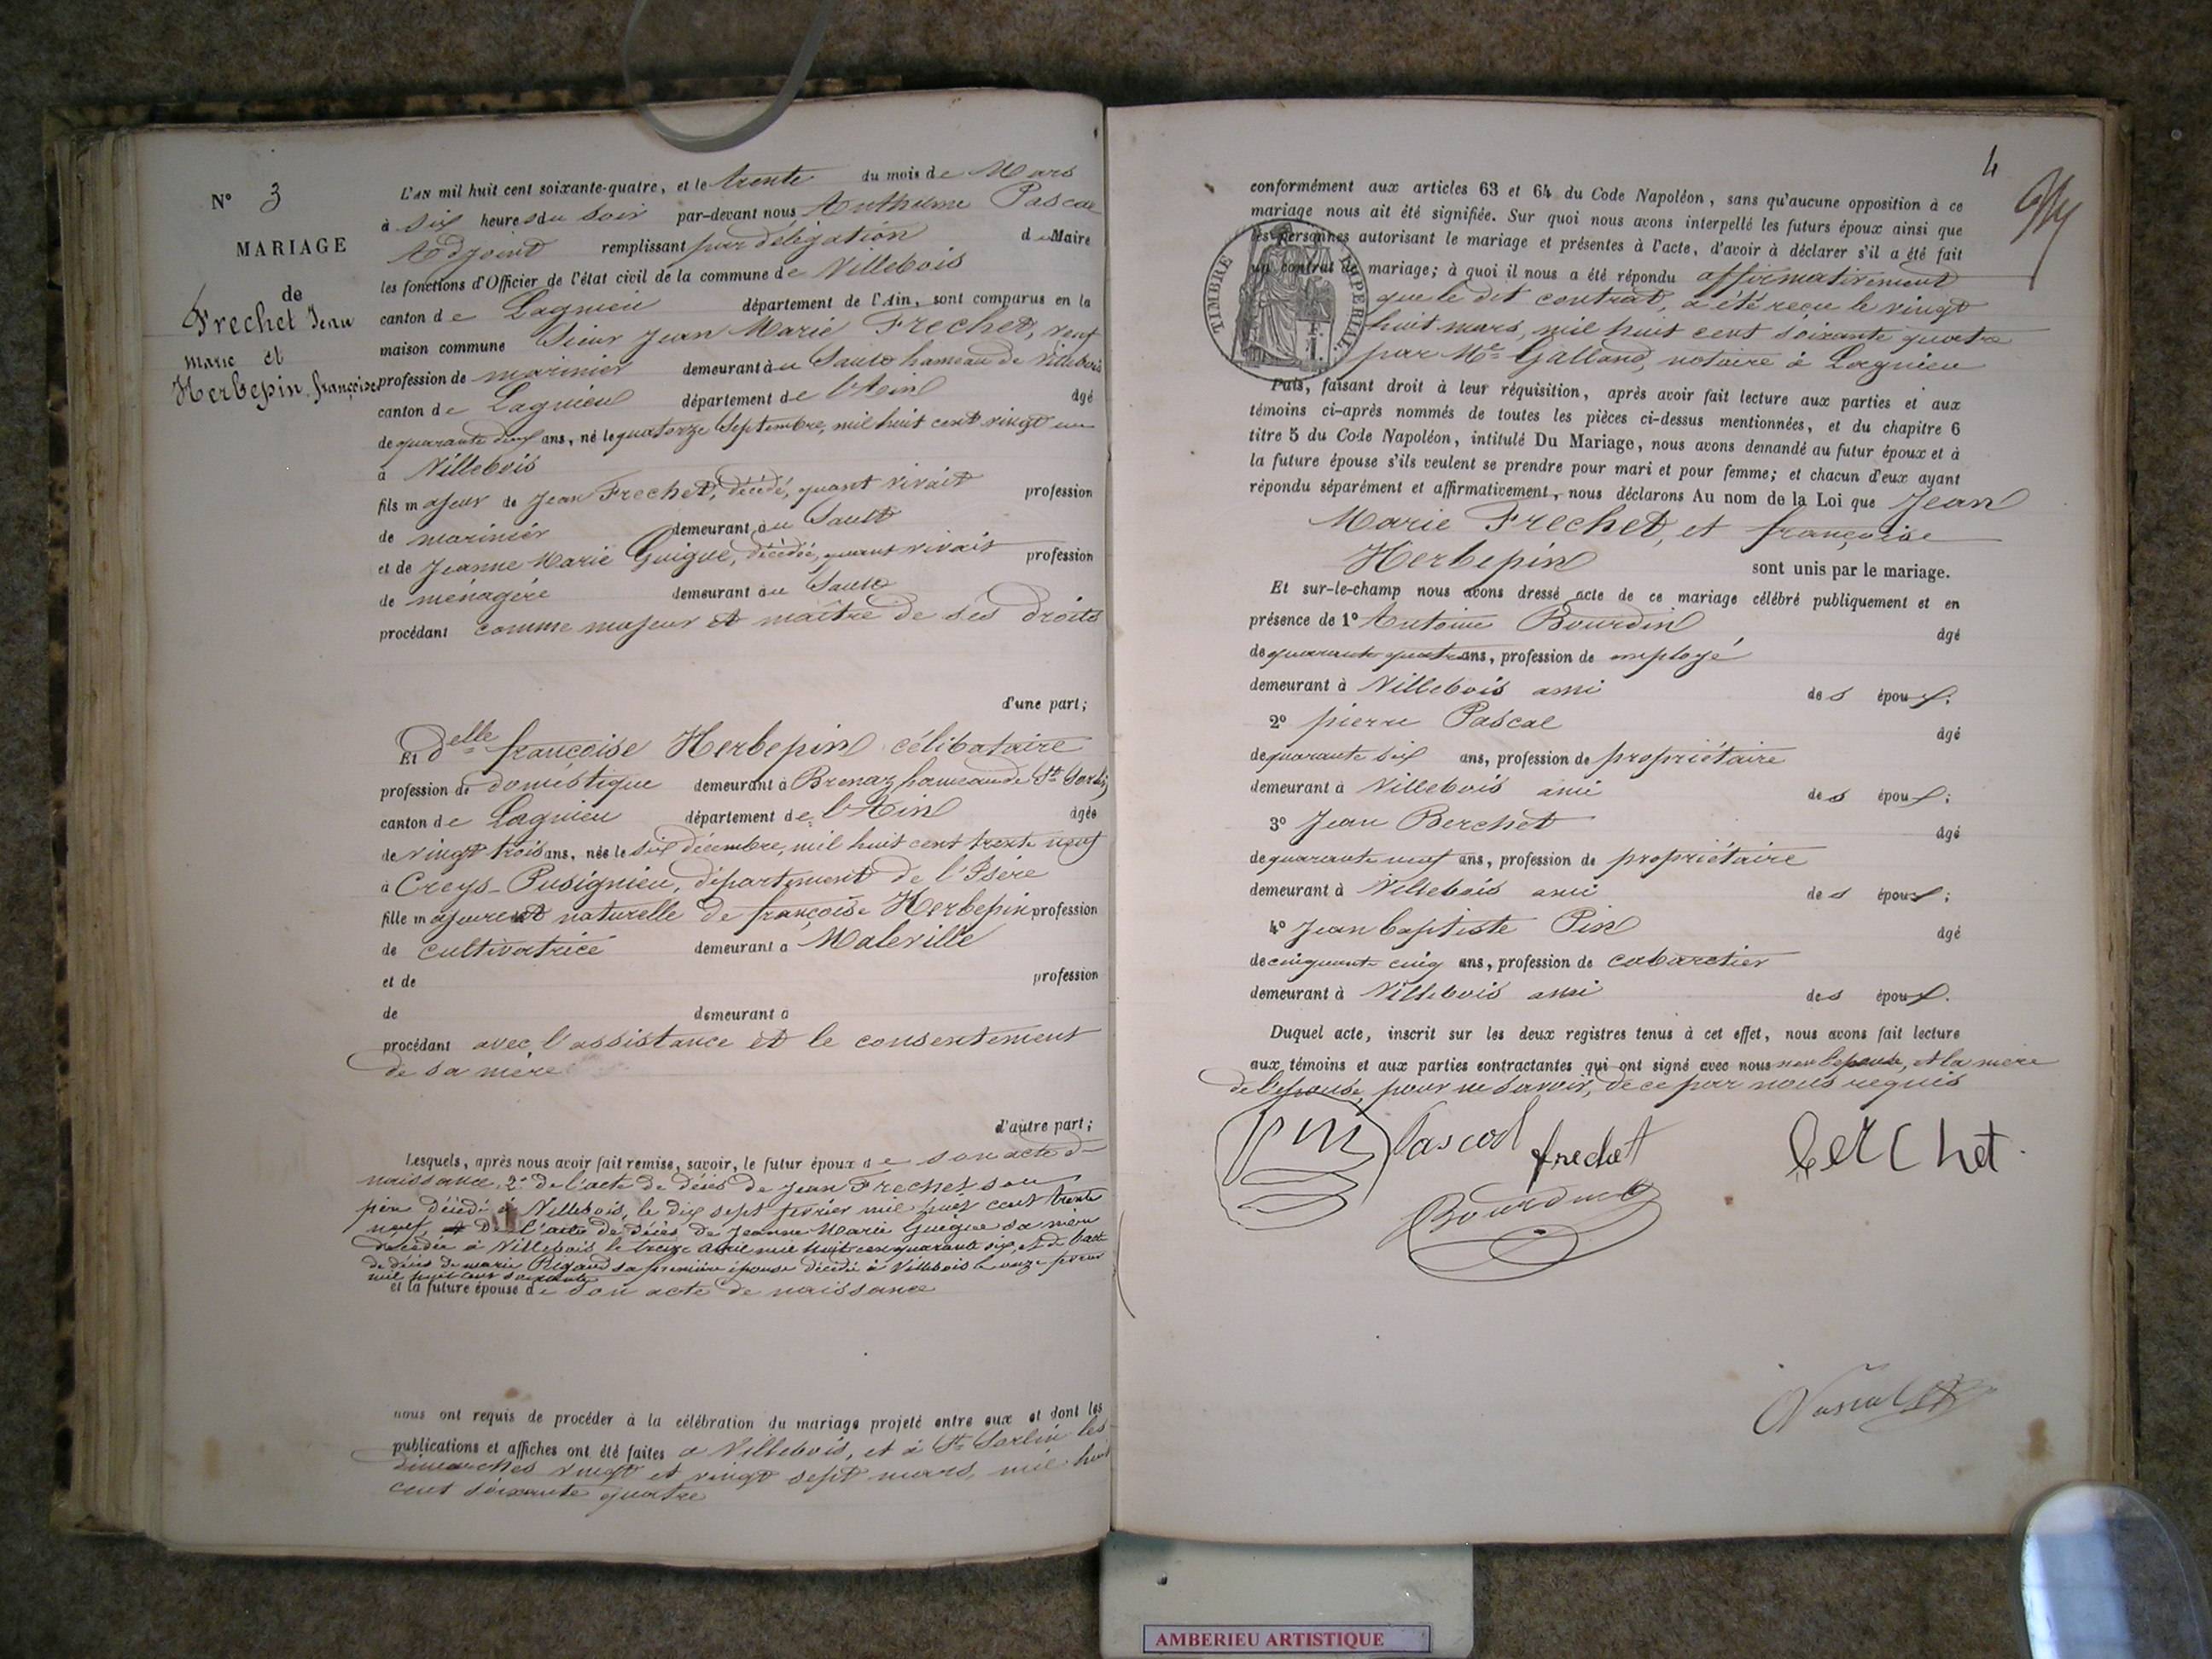 N° 3
MARIAGE
de
Frechet Jean
Marie et
Herbepin françoise
L'AN mil huit cent soixante-quatre, et le trente du mois de Mars
à six heures du soir par-devant nous Anthelme Pascal
Adjoint remplissant par délégation du Maire
les fonctions d'Officier de l'état civil de la commune de Villebois
canton de Lagnieu département de l'Ain, sont comparus en la
maison commune Sieur Jean Marie Frechet, veuf
profession de marinier demeurant au Sault hameau de Villebois
canton de Lagnieu département de l'Ain âgé
de quarante deux ans, né le quatorze Septembre, mil huit cent vingt un
à Villebois
fils majeur de Jean Frechet, décédé, quant vivait profession
de marinier demeurant au Sault
et de Jeanne Marie Guigue, décédée, quant vivait profession
de ménagère demeurant au Sault
procédant comme majeur et maître de ses droits
d'une part;
Et delle françoise Herbepin célibataire
profession de domestique demeurant à Brenaz hameau de St Sorlin
canton de Lagnieu département de l'Ain âgée
de vingt trois ans, née le six décembre, mil huit cent trente neuf
à Creys-Pusignieu, département de l'Isère
fille majeure et naturelle de françoise Herbepin profession
de cultivatrice demeurant à Maleville
et de profession
de demeurant à
procédant avec l'assistance et le consentement
de sa mère
d'autre part;
Lesquels, après nous avoir fait remise, savoir, le futur époux de son acte de
naissance, 2° de l'acte de décès de Jean Frechet son
père décédé à Villebois, le dix sept février mil huit cent trente
neuf, de l'acte de décès de Jeanne Marie Guigue sa mère
décédée à Villebois le treize Avril mil huit cent quarante six, et de l'acte
de décès de marie Rigaud sa première épouse décédé à Villebois le onze février
mil huit cent soixante
et la future épouse de son acte de naissance
nous ont requis de procéder à la célébration du mariage projeté entre eux et dont les
publications et affiches ont été faites à Villebois, et à St Sorlin les
dimanches vingt et vingt sept mars, mil huit
cent soixante quatre
4
conformément aux articles 63 et 64 du Code Napoléon, sans qu'aucune opposition à ce
mariage nous ait été signifiée. Sur quoi nous avons interpellé les futurs époux ainsi que
les personnes autorisant le mariage et présentes à l'acte, d'avoir à déclarer s'il a été fait
un contrat de mariage; à quoi il nous a été répondu affirmativement
que le dit contrat, a été reçu le vingt
huit mars, mil huit cent soixante quatre
par Me Galland, notaire à Lagnieu
TIMBRE IMPERIAL
Puis, faisant droit à leur réquisition, après avoir fait lecture aux parties et aux
témoins ci-après nommés de toutes les pièces ci-dessus mentionnées, et du chapitre 6
titre 5 du Code Napoléon, intitulé Du Mariage, nous avons demandé au futur époux et à
la future épouse s'ils veulent se prendre pour mari et pour femme; et chacun d'eux ayant
répondu séparément et affirmativement, nous déclarons Au nom de la Loi que Jean
Marie Frechet, et françoise
Herbepin sont unis par le mariage.
Et sur-le-champ nous avons dressé acte de ce mariage célébré publiquement et en
présence de 1° Antoine Bourdin âgé
de quarante quatre ans, profession de employé
demeurant à Villebois ami des époux;
2° pierre Pascal âgé
de quarante six ans, profession de propriétaire
demeurant à Villebois ami des époux;
3° Jean Berchet âgé
de quarante neuf ans, profession de propriétaire
demeurant à Villebois ami des époux;
4° Jean baptiste Pin âgé
de cinquante cinq ans, profession de cabaretier
demeurant à Villebois ami des époux.
Duquel acte, inscrit sur les deux registres tenus à cet effet, nous avons fait lecture
aux témoins et aux parties contractantes qui ont signé avec nous non l'épouse, et la mère
de l'épouse, pour ne savoir, de ce par nous requis
Pin Pascal frechet berchet
Bourdin
Pascal
AMBERIEU ARTISTIQUE